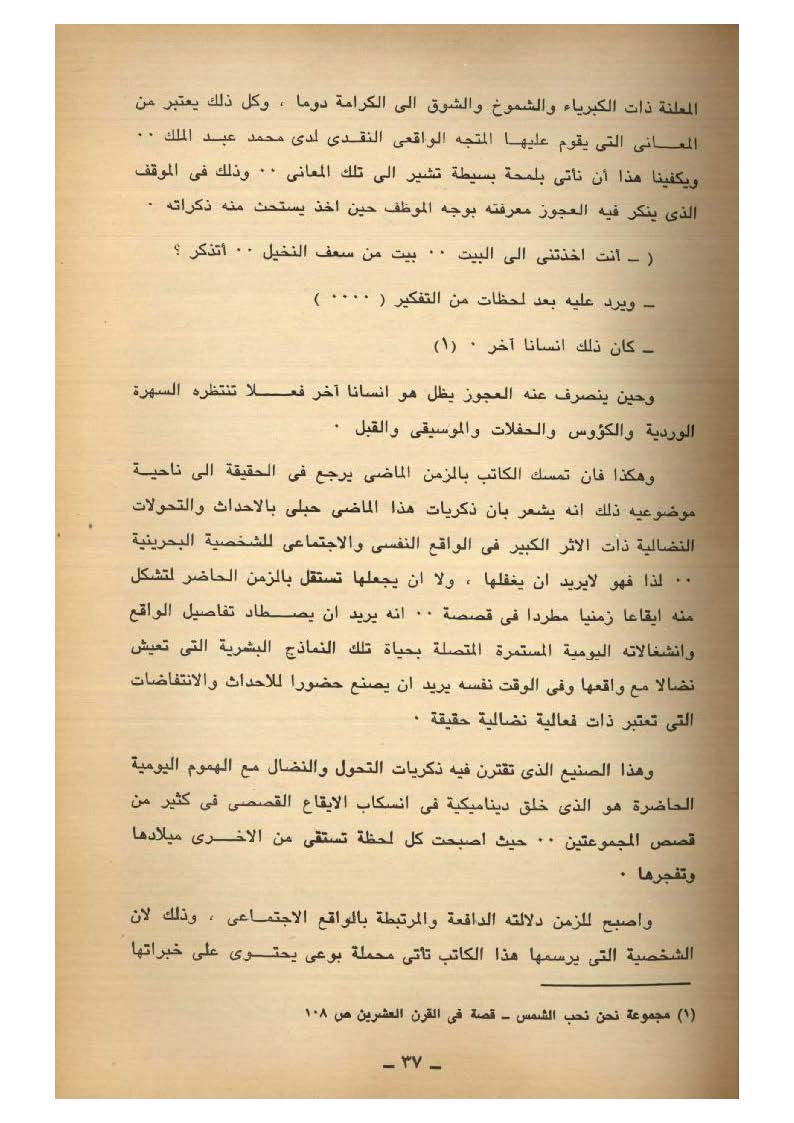 المعلنة ذات الكبرياء والشموخ والشوق الى الكرامة دوما ، وكل ذلك يعتبر من
المعـــانى التى يقوم عليهـا المتجه الواقعى النقـدى لدى محمد عبـد الملك ٠٠
ويكفينا هذا أن نأتى بلمحة بسيطة تشير الى تلك المعانى ٠٠ وذلك فى الموقف
الذى ينكر فيه العجوز معرفته بوجه الموظف حين اخذ يستحث منه ذكراته ٠
( ــ أنت اخذتنى الى البيت ٠٠ بيت من سعف النخيل ٠٠ أتذكر ؟
ــ ويرد عليه بعد لحظات من التفكير ( ٠٠٠٠ )
ــ كان ذلك انسانا آخر ٠ (١)
وحين ينصرف عنه العجوز يظل هو انسانا آخر فعــــلا تنتظره السهرة
الوردية والكؤوس والحفلات والموسيقى والقبل ٠
وهكذا فان تمسك الكاتب بالزمن الماضى يرجع فى الحقيقة الى ناحيـة
موضوعيه ذلك انه يشعر بان ذكريات هذا الماضى حبلى بالاحداث والتحولات
النضالية ذات الاثر الكبير فى الواقع النفسى والاجتماعى للشخصية البحرينية
٠٠ لذا فهو لايريد ان يغفلها ، ولا ان يجعلها تستقل بالزمن الحاضر لتشكل
منه ايقاعا زمنيا مطردا فى قصصة ٠٠ انه يريد ان يصــطاد تفاصيل الواقع
وانشغالاته اليومية المستمرة المتصلة بحياة تلك النماذج البشرية التى تعيش
نضالا مع واقعها وفى الوقت نفسه يريد ان يصنع حضورا للاحداث والانتفاضات
التى تعتبر ذات فعالية نضالية حقيقة ٠
وهذا الصنيع الذى تقترن فيه ذكريات التحول والنضال مع الهموم اليومية
الحاضرة هو الذى خلق ديناميكية فى انسكاب الايقاع القصصى فى كثير من
قصص المجموعتين ٠٠ حيث اصبحت كل لحظة تستقى من الاخــرى ميلادها
وتفجرها ٠
واصبح للزمن دلالته الدافعة والمرتبطة بالواقع الاجتمـاعى ، وذلك لان
الشخصية التى يرسمها هذا الكاتب تأتى محملة بوعى يحتــوى على خبراتها
(١) مجموعة نحن نحب الشمس ــ قصة فى القرن العشرين ص ١٠٨
ــ ٣٧ ــ